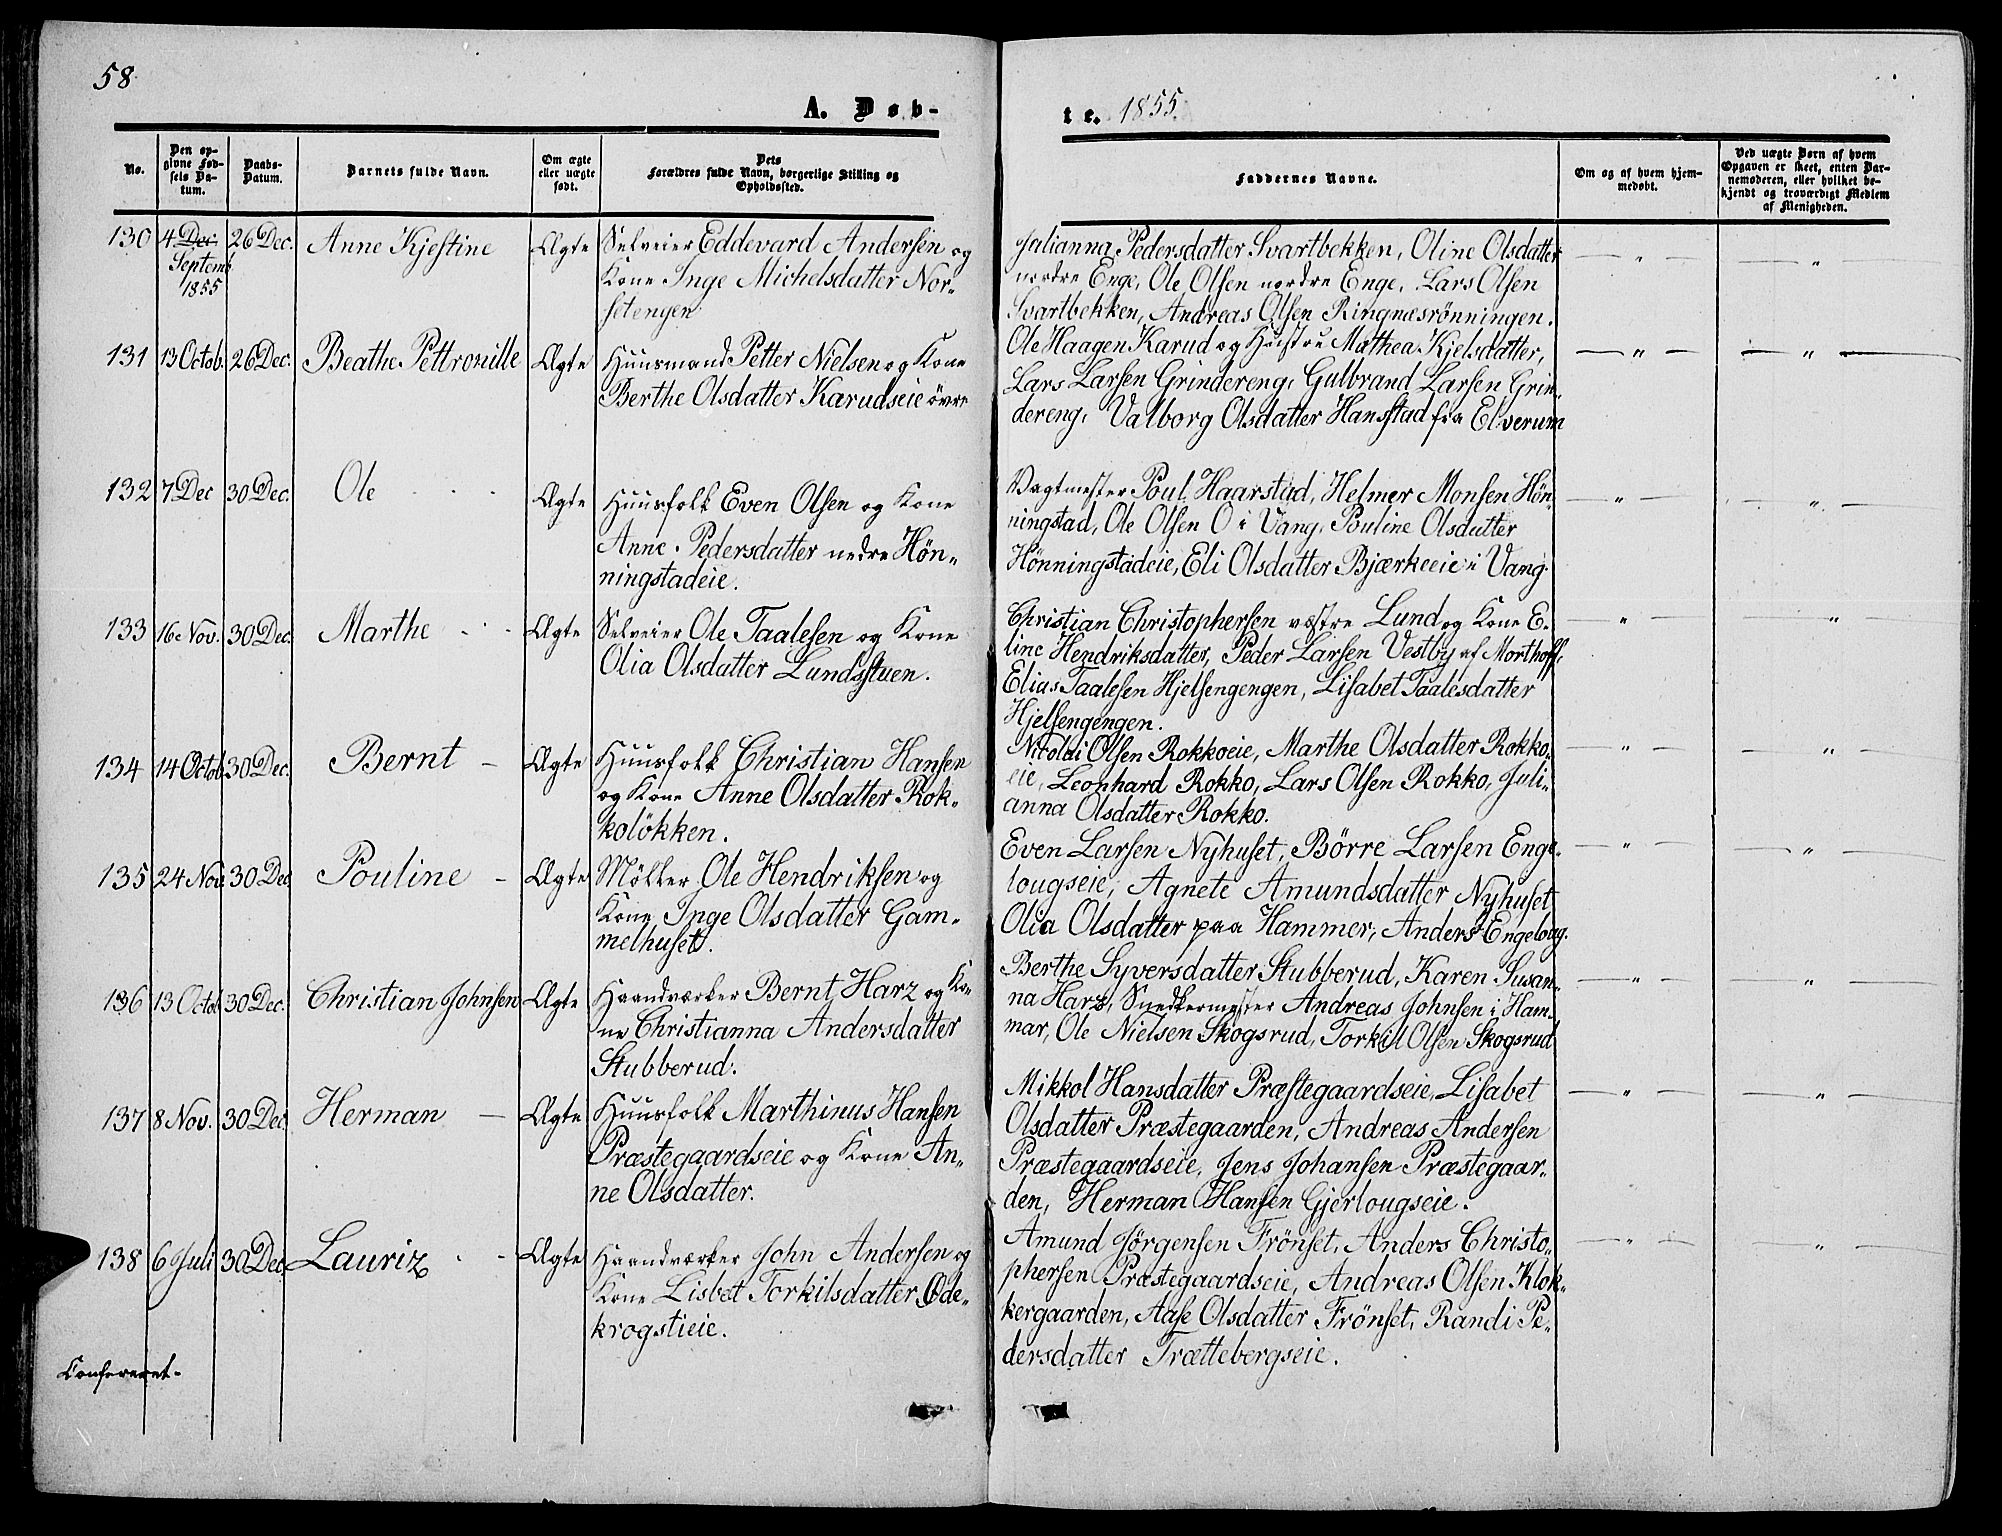 58
A. Døb-
te. 1855.
No.
Den op-
givne Fød-
sels Da-
tum.
Daabs-
Datum.
Barnets fulde Navn.
Om ægte
eller uægte
født.
Dets
Forældres fulde Navn, borgerlige Stilling og
Opholdssted.
Faddernes Navne.
Om og af hvem hjem-
medøbt.
Ved uægte Børn af hvem
Opgaven er skeet, enten Bar-
nemoderen, eller hvilket be-
kjendt og troværdigt Medlem
af Menigheden.
130 4 Dec. 26 Dec. Anne Kjestine Ægte Selveier Eddevard Andersen og
Septemb.
1855
Kone Inge Michelsdatter Nor-
setengen
Julianna Pedersdatter Svartbekken, Oline Olsdatter
nordre Enge, Ole Olsen nordre Enge, Lars Olsen
Svartbekken, Andreas Olsen Ringnæsrønningen.
131 13 Octob. 26 Dec. Beathe Pettronille Ægte Huusmand Petter Nielsen og Kone
Berthe Olsdatter Karudseie övre
Ole Haagen Karud og Hustru Mathea Kjelsdatter,
Lars Larsen Grindereng, Gulbrand Larsen Grin-
dereng, Valborg Olsdatter Hansstad fra Elverum
132 7 Dec 30 Dec. Ole Ægte Huusfolk Even Olsen og Kone
Anne Pedersdatter nedre Hön-
ningstadeie.
Vagtmester Poul Haarstad, Helmer Monsen Hön-
ningstad, Ole Olsen O i Vang, Pouline Olsdatter
Hönningstadeie, Eli Olsdatter Bjærkeeie i Vang
133 16 Nov. 30 Dec. Marthe Ægte Selveier Ole Taalesen og Kone
Olia Olsdatter Lundsstuen.
Christian Christophersen vestre Lund og Kone E-
line Hendriksdatter, Peder Larsen Vestby af Morthoff,
Elias Taalesen Hjelsengengen, Lisabet Taalesdatter
Hjelsengengen.
134 14 Octob. 30 Dec. Bernt - Ægte Huusfolk Christian Hansen
og Kone Anne Olsdatter Rok-
kolökken.
Nicolai Olsen Rokkoeie, Marthe Olsdatter Rokko-
eie, Leonhard Rokko, Lars Olsen Rokko, Juli-
anna Olsdatter Rokko.
135 24 Nov. 30 Dec. Pouline - Ægte Møller Ole Hendriksen og
Kone Inge Olsdatter Gam-
melhuset.
Even Larsen Nyhuset, Börre Larsen Enge-
lougseie, Agnete Amundsdatter Nyhuset
Olia Olsdatter paa Hammer, Anders Engeloug.
136 13 Octob. 30 Dec. Christian Johnsen Ægte Haandværker Bernt Harz og Ko-
ne Christianna Andersdatter
Stubberud.
Berthe Syversdatter Stubberud, Karen Susan-
na Harz, Snedkermester Andreas Johnsen i Ham-
mar, Ole Nielsen Skogsrud, Torkil Olsen Skogsrud
137 8 Nov. 30 Dec. Herman - Ægte Huusfolk Marthinus Hansen
Præstegaardseie og Kone An-
ne Olsdatter.
Mikkol Hansdatter Præstegaardseie, Lisabet
Olsdatter Præstegaarden, Andreas Andersen
Præstegaardseie, Jens Johansen Præstegaar-
den, Herman Hansen Gjerlougseie.
138 6 Juli 30 Dec. Lauriz - Ægte Haandværker John Andersen og
Kone Lisbet Torkilsdatter Öde-
krogstieie.
Amund Jörgensen Frönset, Anders Christo-
phersen Præstegaardseie, Andreas Olsen Klok-
kergaarden, Aase Olsdatter Frönset, Randi Pe-
dersdatter Trættebergseie.
Confereret-